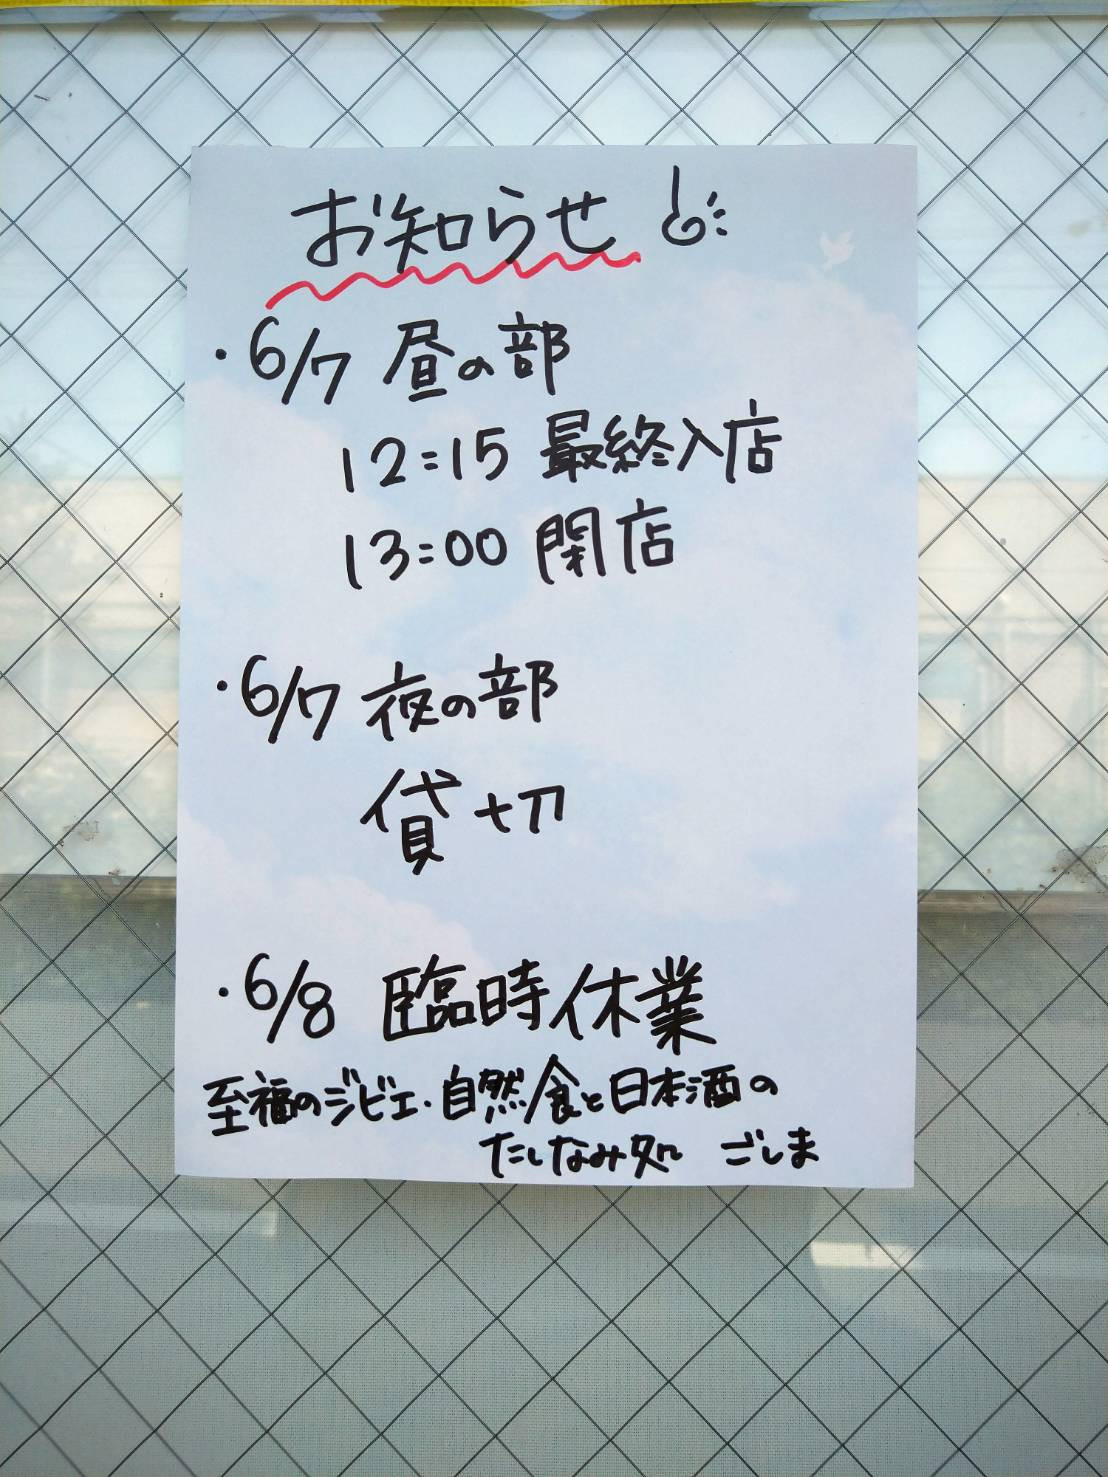 お知らせ
・6/7 昼の部
12:15 最終入店
13:00 閉店
・6/7 夜の部
貸切
・6/8 臨時休業
至福のジビエ・自然食と日本酒の
たしなみ処 ごしま